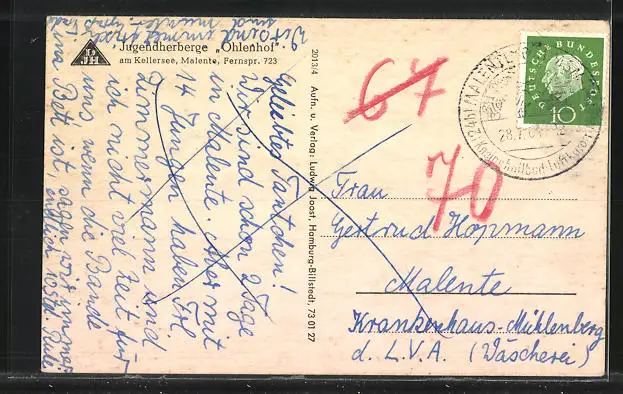 DJH
Jugendherberge „Ohlenhof"
am Kellersee, Malente, Fernspr. 723
Geliebtes Tantchen!
Wir sind schon 2 Tage
in Malente. Aber mit
14 Jungen haben Frl
Zimmermann und
ich nicht viel Zeit für
uns, wenn die Bande
im Bett ist, sagen wir
sind
2013/4 Aufn. u. Verlag: Ludwig Joost, Hamburg-Billstedt, 73 01 27
67
70
DEUTSCHE BUNDESPOST
10
MALENTE
28.7.
Frau
Gertrud Hopmann
Malente
Krankenhaus-Mühlenberg
d. L.V.A. (Wäscherei)